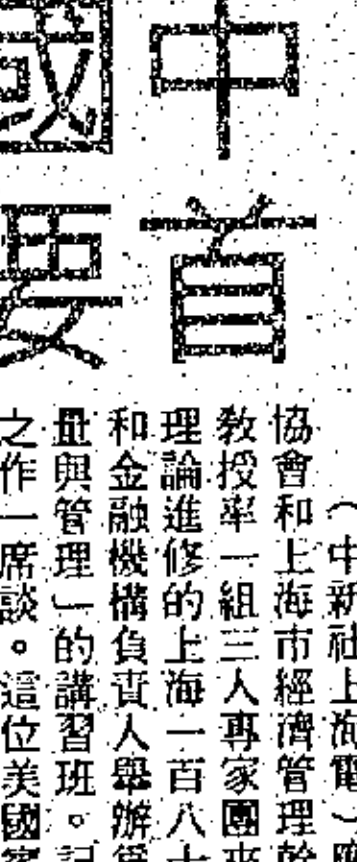 中首
國要
（中新社上海電）應
協會和上海市經濟管理幹
教授率一組三人專家團來
理論進修的上海一百八十
和金融機構負責人舉辦爲
量與管理」的講習班。記
之作一席談。這位美國客